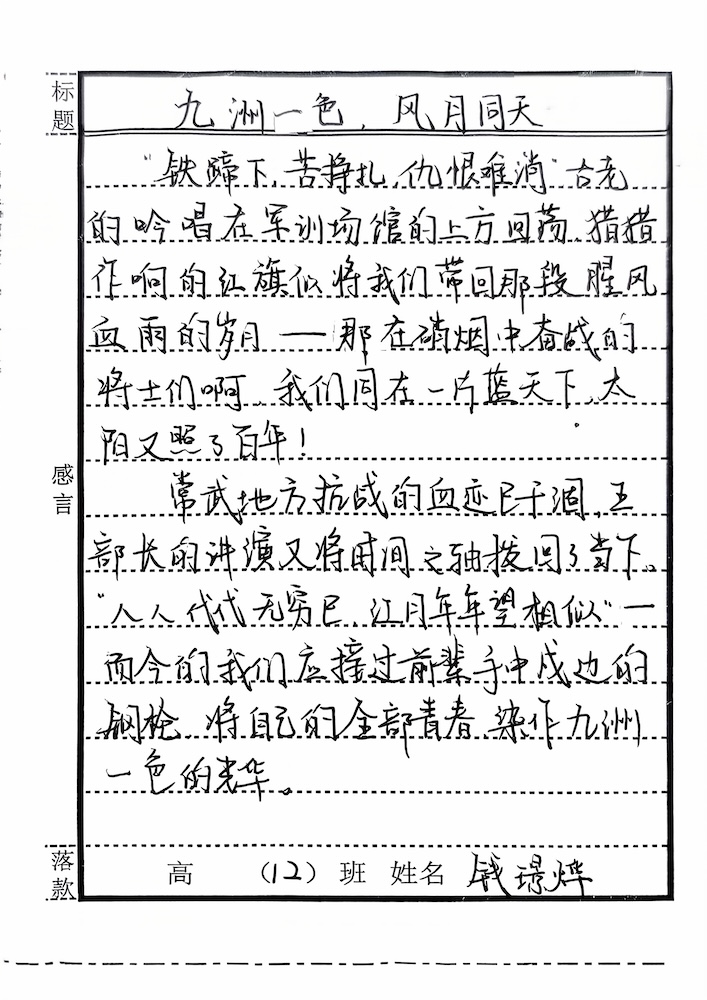 标题
九洲一色，风月同天
"铁蹄下，苦挣扎，仇恨难消"古老
的吟唱在军训场馆的上方回荡，猎猎
作响的红旗似将我们带回那段腥风
血雨的岁月——那在硝烟中奋战的
将士们啊，我们同在一片蓝天下，太
阳又照了百年！
常武地方抗战的血迹已干涸，王
部长的讲演又将时间之轴拨回了当下。
"人人代代无穷已，江月年年望相似"—
而今的我们应接过前辈手中戍边的
钢枪，将自己的全部青春，染作九洲
一色的光华。
感言
落款
高 （12）班 姓名 钱璟烨